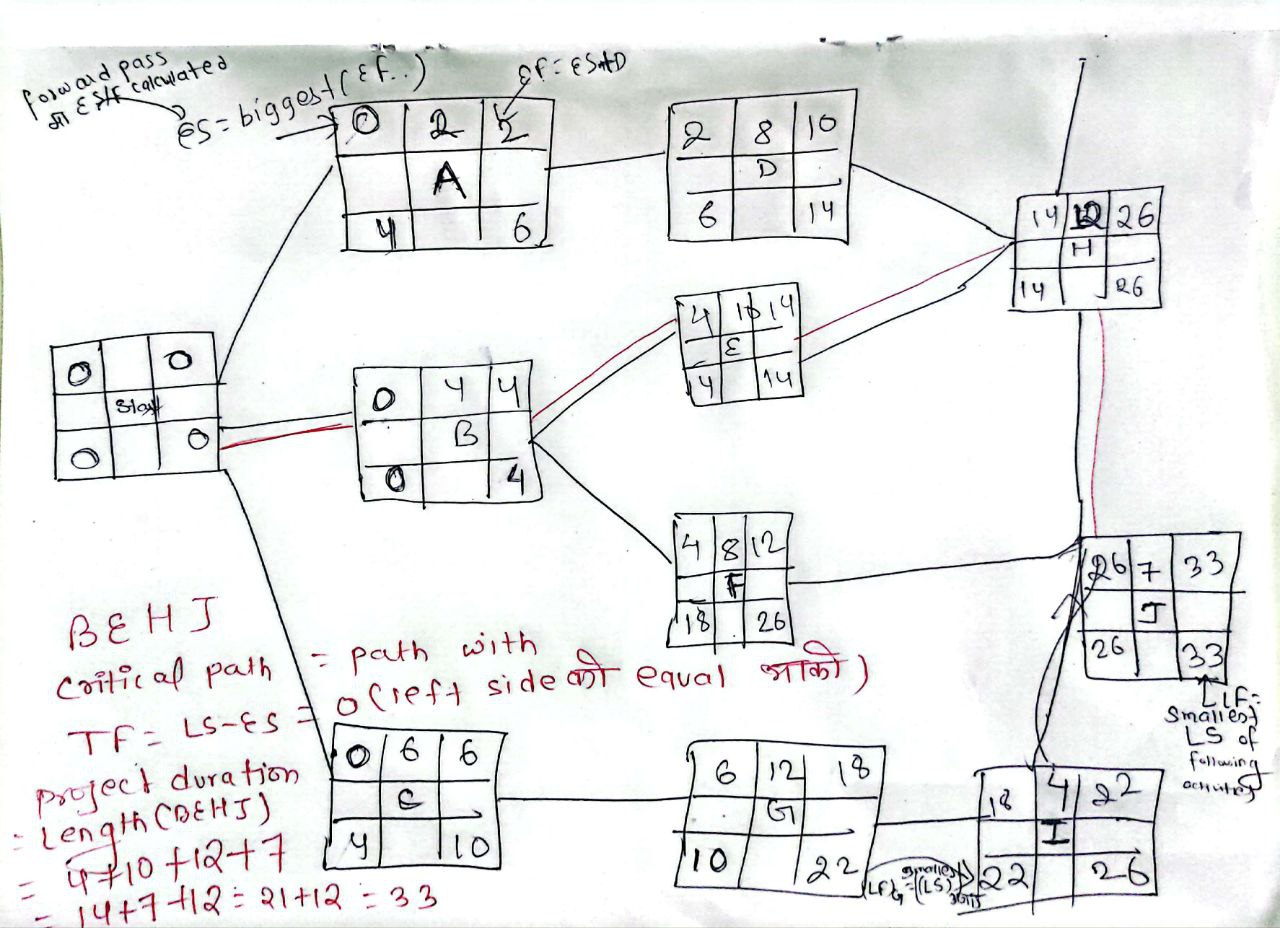 forward pass
मा ES/F calculated
ES = biggest (EF..)
EF = ES+D
0 2 2
A
4 6
2 8 10
D
6 14
14 12 26
H
14 26
4 10 14
E
4 14
0 0
Start
0 0
0 4 4
B
0 4
4 8 12
F
18 26
26 7 33
J
26 33
LF =
smallest
LS of
following
activities
BEHJ
critical path = path with
0 (left side को equal भाको)
TF = LS-ES =
project duration
= Length (BEHJ)
= 4+10+12+7
= 14+7+12 = 21+12 = 33
0 6 6
C
4 10
6 12 18
G
10 22
18 4 22
I
22 26
smallest
(LS)